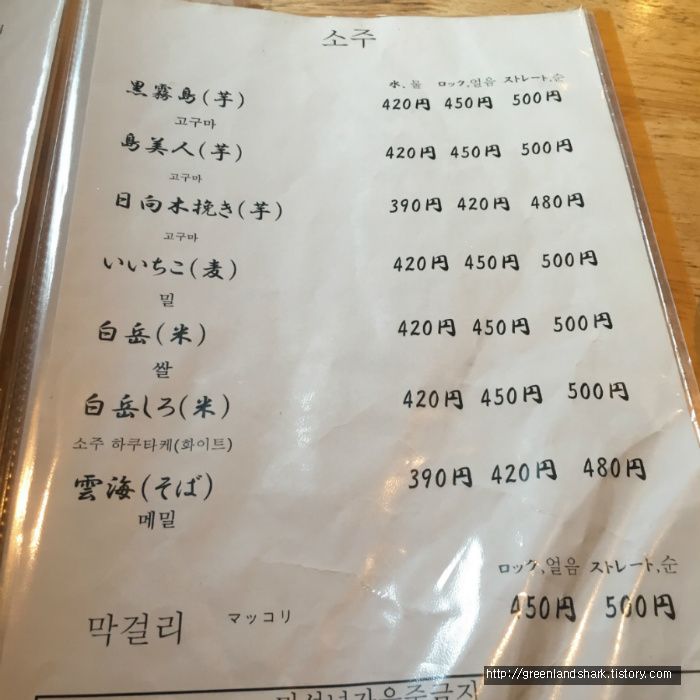 소주
水, 물 ロック,얼음 ストレート,순
黒霧島(芋) 420円 450円 500円
고구마
島美人(芋) 420円 450円 500円
고구마
日向木挽き(芋) 390円 420円 480円
고구마
いいちこ(麦) 420円 450円 500円
밀
白岳(米) 420円 450円 500円
쌀
白岳しろ(米) 420円 450円 500円
소주 하쿠타케(화이트)
雲海(そば) 390円 420円 480円
메밀
ロック,얼음 ストレート,순
막걸리 マッコリ 450円 500円
http://greenlandshark.tistory.com